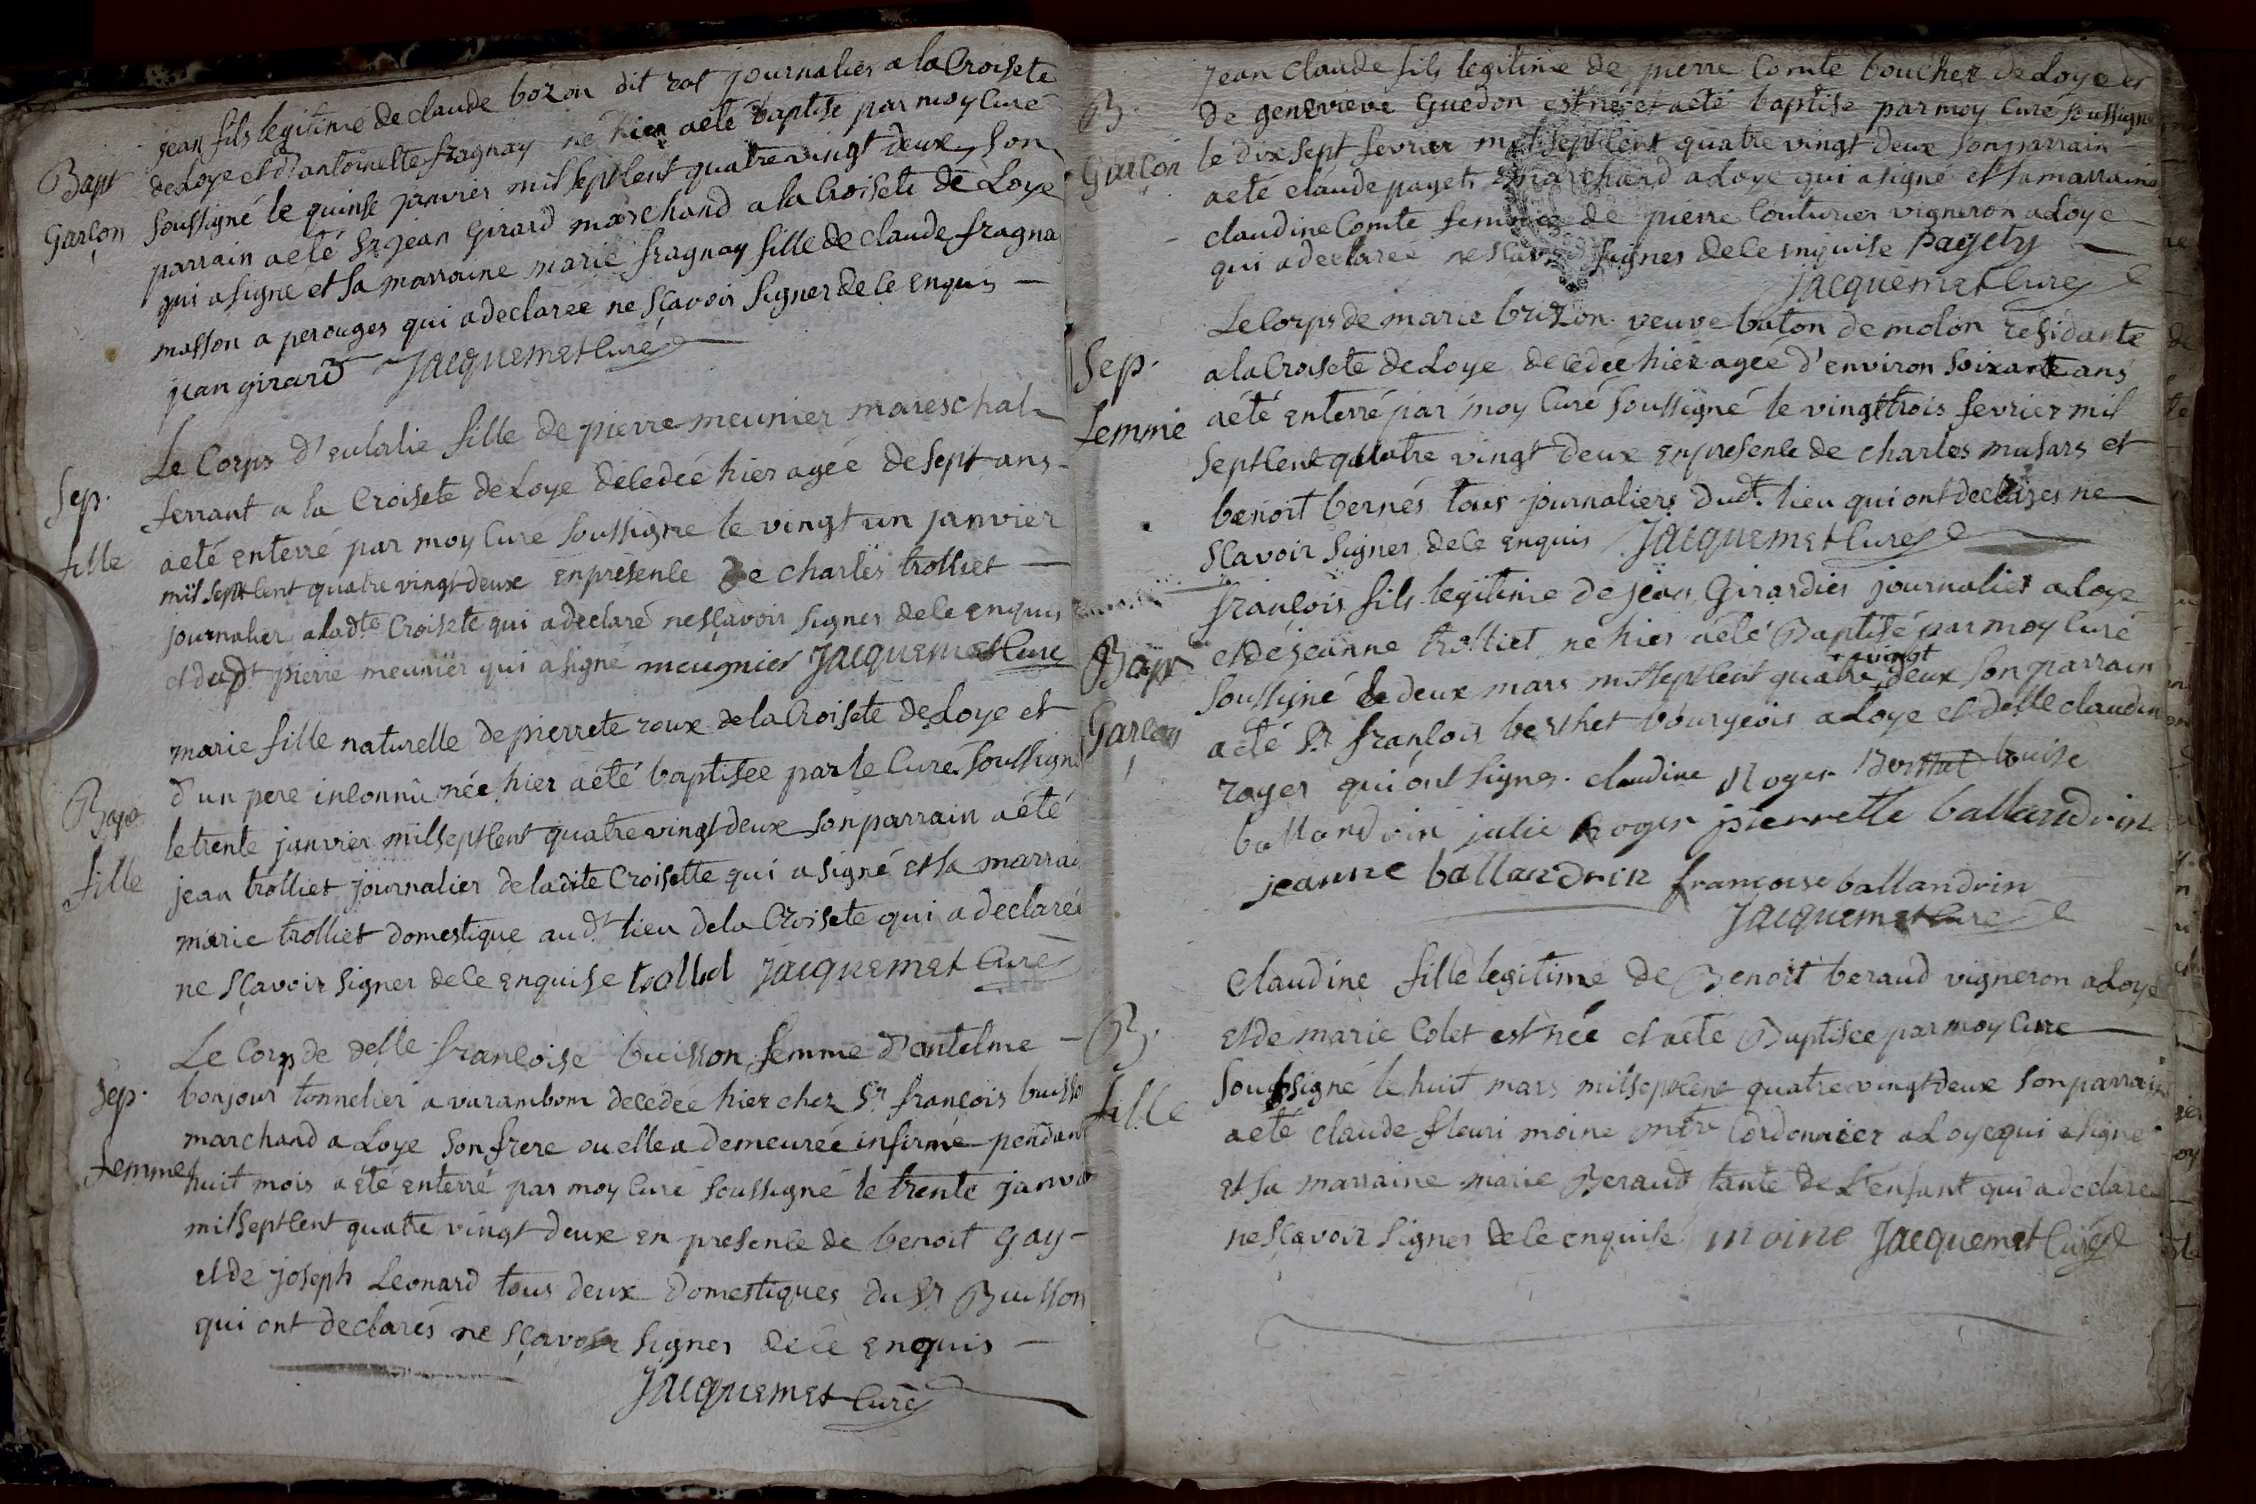 jean fils legitime de claude bozon dit rat journalier a la Croisete
Bapt
de Loye et d'antoinette fragnay né hier a eté baptisé par moy Curé
Garçon
soussigné le quinse janvier mil sept cent quatre vingt deux, son
parrain a eté Sr jean Girard marchand a la Croisete de Loye
qui a signé et sa marraine marie fragnay fille de claude fragna
masson a perouges qui a declaree ne sçavoir signer de ce enquis
jean girard Jacquemet Curé
Sep.
fille
Le Corps d'eulalie fille de pierre meunier mareschal
ferrant a la Croisete de Loye decedée hier agée de sept ans
a eté enterré par moy Curé soussigné le vingt un janvier
mil sept cent quatre vingt deux en presence de charles trolliet
journalier a la dte Croisete qui a declaré ne sçavoir signer de ce enquis
et du dt pierre meunier qui a signé meugnier Jacquemet Curé
Bapt
fille
marie fille naturelle de pierrete roux de la Croisete de Loye et
d'un pere inconnû née hier a eté baptisee par le Curé soussigné
le trente janvier mil sept cent quatre vingt deux son parrain a eté
jean trolliet journalier de la dite Croisette qui a signé et sa marrai
marie trolliet domestique au dt lieu de la Croisete qui a declareé
ne sçavoir signer de ce enquise trollid Jacquemet Curé
Sep.
femme
Le Corp de delle françoise buisson femme d'antelme
bonjour tonnelier a varambom decedée hier chez Sr françois buisso
marchand a Loye son frere ou elle a demeureé infirme pendant
huit mois a eté enterré par moy Curé soussigné le trente janvier
mil sept cent quatre vingt deux en presence de benoit Gay
et de joseph Leonard tous deux domestiques du Sr Buisson
qui ont declarés ne sçavoir signer de ce enquis
Jacquemet Curé
B.
Garçon
jean claude fils legitime de pierre Comte boucher de Loye et
de genevieve Guedon est né et a eté baptisé par moy Curé soussigné
le dix sept fevrier mil sept cent quatre vingt deux son parrain
a eté claude pagets marchand a Loye qui a signé et sa marraine
claudine Comte femme de pierre Couturier vigneron a Loye
qui a declareé ne sçavoir signer de ce enquise Pagets
Jacquemet Curé
Sep.
femme
Le Corps de marie brizon veuve baton de molon residante
a la Croisete de Loye decedée hier agée d'environ soixante ans
a eté enterré par moy Curé soussigné le vingt trois fevrier mil
sept cent quatre vingt deux en presence de charles musars et
benoit bernés tous journaliers dudt. lieu qui ont declarés ne
sçavoir signer de ce enquis Jacquemet Curé
Bapt
Garçon
françois fils legitime de jean Girardier journalier a Loye
et de jeanne trolliet né hier a eté Baptisé par moy Curé
soussigné le deux mars mil sept cent quatre vingt deux son parrain
a eté Sr françois berthet bourgeois a Loye et delle claudin
roger qui ont signés. claudine Roger Berthet louise
ballandrin julie Roger pierrette ballandrin
jeanne ballandrin françoise ballandrin
Jacquemet Curé
B.
fille
Claudine fille legitime de Benoit beraud vigneron a Loye
et de marie Colet est née et a eté Baptisee par moy Cure
soussigné le huit mars mil sept cent quatre vingt deux son parrain
a eté claude fleuri moine mtre Cordonnier a Loye qui a signé
et sa marraine marie Beraud tante de L'enfant qui a declareé
ne sçavoir signer de ce enquise moine Jacquemet Curé